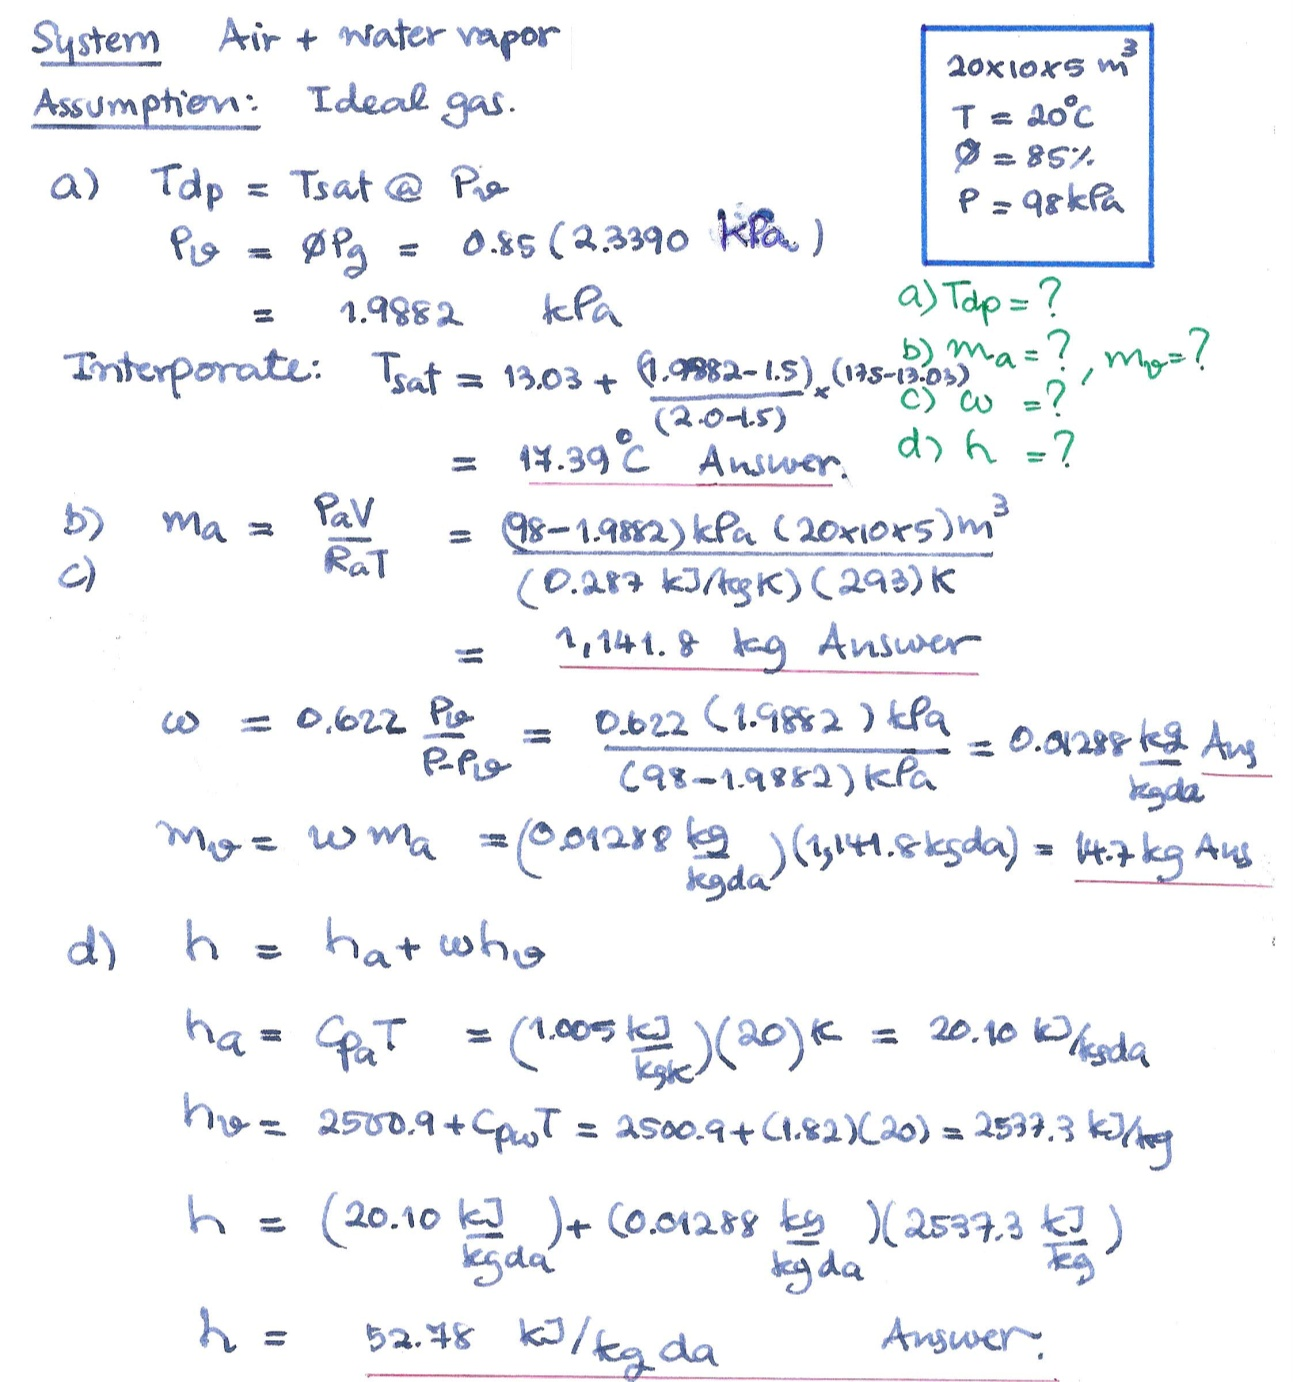 System Air + water vapor
Assumption: Ideal gas.
20x10x5 m³
T = 20°C
Ø = 85%
P = 98 kPa
a) Tdp = Tsat @ Pv
Pv = ØPg = 0.85 (2.3390 kPa)
= 1.9882 kPa
a) Tdp = ?
b) ma = ?, mv = ?
c) ω = ?
d) h = ?
Interporate: Tsat = 13.03 + (1.9882-1.5)/(2.0-1.5) x (17.5-13.03)
= 17.39°C Answer.
b) ma = PaV/RaT = (98-1.9882) kPa (20x10x5) m³/(0.287 kJ/kgK) (293) K
c)
= 1,141.8 kg Answer
ω = 0.622 Pv/P-Pv = 0.622 (1.9882) kPa/(98-1.9882) kPa = 0.01288 kg/kgda Ans
mv = ω ma = (0.01288 kg/kgda) (1,141.8 kgda) = 14.7 kg Ans
d) h = ha + ωhv
ha = CpaT = (1.005 kJ/kgK) (20) K = 20.10 kJ/kgda
hv = 2500.9 + CpwT = 2500.9 + (1.82)(20) = 2537.3 kJ/kg
h = (20.10 kJ/kgda) + (0.01288 kg/kgda) (2537.3 kJ/kg)
h = 52.78 kJ/kg da Answer.